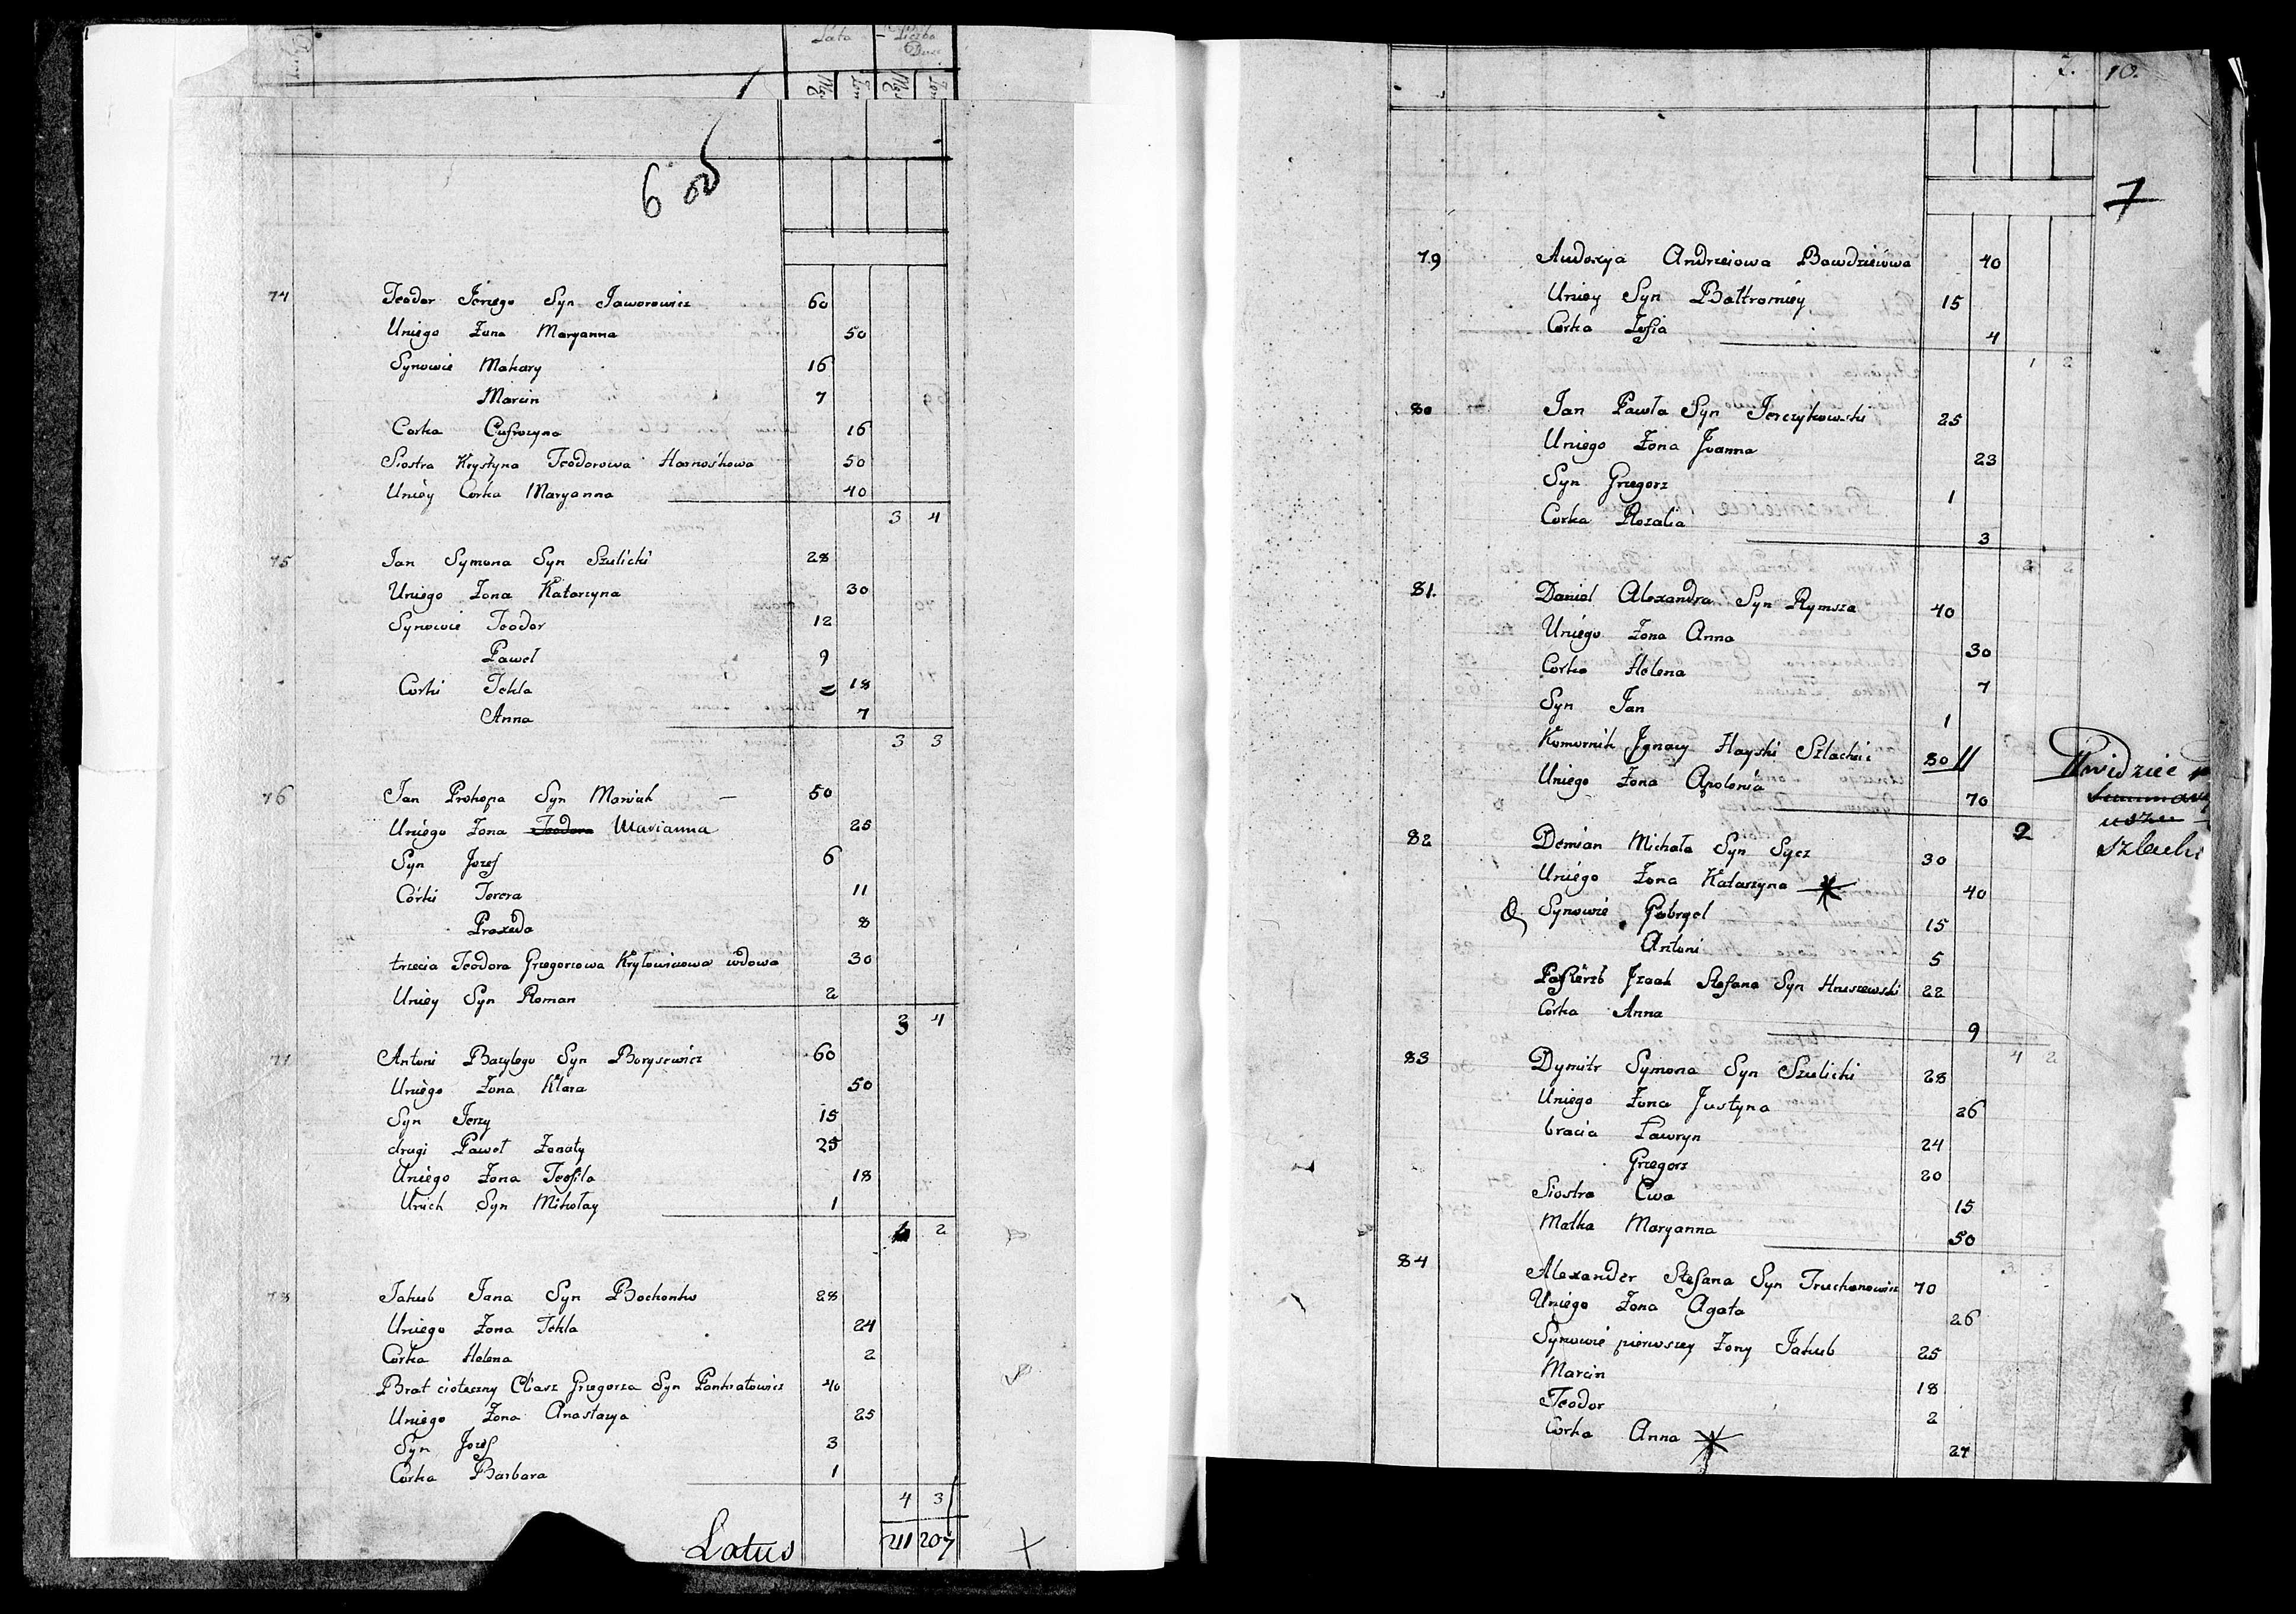 Lata Liczba Dusz
Męz Żon Męz Żon
6 od
74 Teodor Jerzego Syn Jaworowicz 60
Uniego Żona Maryanna 50
Synowie Makary 16
Marcin 7
Corka Eufrozyna 16
Siostra Krystyna Teodorowa Harnośkowa 50
Uniey Corka Maryanna 40
3 4
75 Jan Symona Syn Szulicki 28
Uniego Żona Katarzyna 30
Synowie Teodor 12
Paweł 9
Corki Tekla 18
Anna 7
3 3
76 Jan Prokopa Syn Moniak — 50
Uniego Żona Teodora Marianna 25
Syn Jozef 6
Córki Teresa 11
Praxeda 8
trzecia Teodora Grzegorzowa Kryłowiczowa wdowa 30
Uniey Syn Roman 2
3 4
77 Antoni Bazylego Syn Borysewicz 60
Uniego Żona Klara 50
Syn Jerzy 15
drugi Paweł Żonaty 25
Uniego Żona Teofila 18
Unich Syn Mikołay 1
4 2
78 Jakub Jana Syn Bochonko 28
Uniego Żona Tekla 24
Corka Helena 2
Brat cioteczny Eliasz Grzegorza Syn Pankratowicz 40
Uniego Żona Anastazya 25
Syn Jozef 3
Corka Barbara 1
4 3
Latus 211 207
7. 10.
7
79 Audocya Andrzeiowa Bawdziewiowa 40
Uniey Syn Bałtromiey 15
Corka Zofia 4
1 2
80 Jan Pawła Syn Jerczykowski 25
Uniego Żona Joanna 23
Syn Grzegorz 1
Corka Rozalia 3
2 2
81. Daniel Alexandra Syn Rymsza 40
Uniego Żona Anna 30
Corka Helena 7
Syn Jan 1
Komornik Jgnacy Hayski Szlachcic 80 //
Uniego Żona Apolonia 70
// widziec
szlachi
2
82 Demian Michała Syn Sycz 30
Uniego Żona Katarzyna 40
Synowie Gabryel 15
Antoni 5
Pasierb Jzaak Stefana Syn Hruszewski 22
Corka Anna 9
4 2
83 Dymitr Symona Syn Szulicki 28
Uniego Żona Justyna 26
bracia Ławryn 24
Grzegorz 20
Siostra Ewa 15
Matka Maryanna 50
3
84 Alexander Stefana Syn Truchanowicz 70
Uniego Żona Agata 26
Synowie pierwszey Żony Jakub 25
Marcin 18
Teodor 2
Corka Anna 27